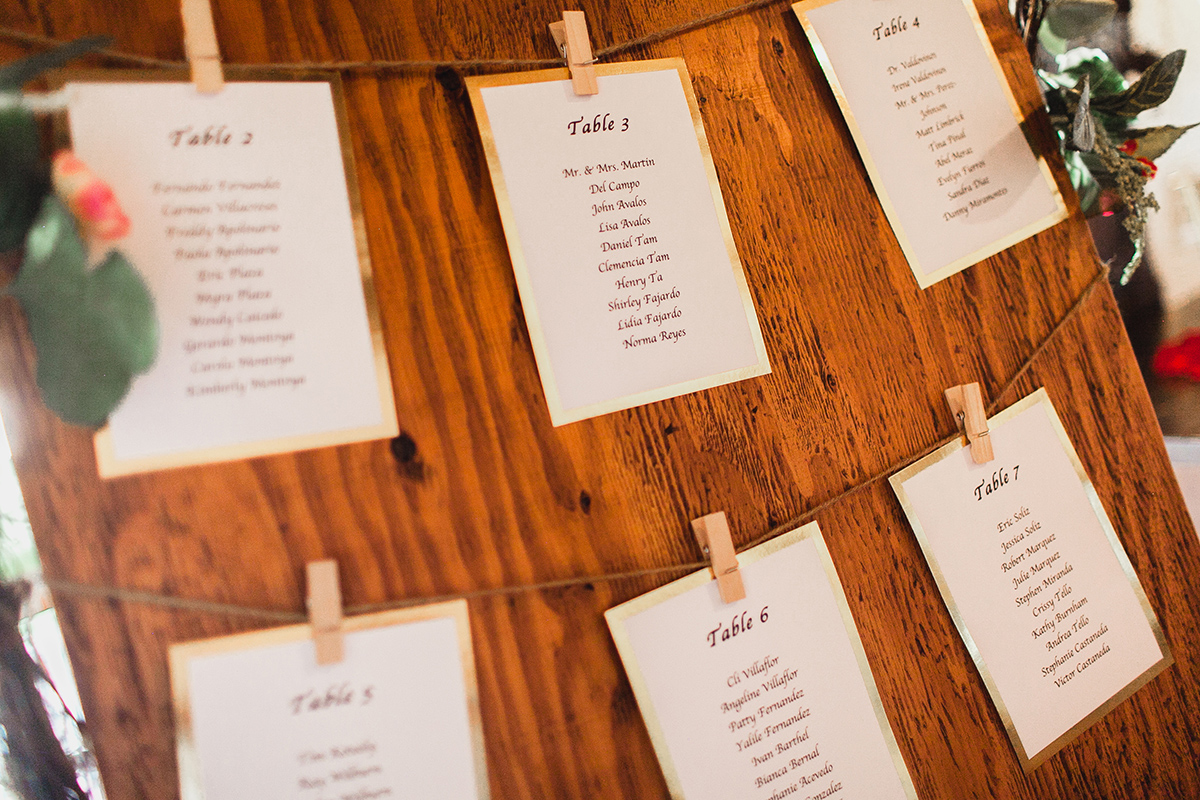 Table 2
Fernando Fernandez
Carmen Villacreses
Freddy Apolinario
Paola Apolinario
Eric Plaza
Negra Plaza
Wendy Caicedo
Gerardo Montoya
Carola Montoya
Kimberly Montoya
Table 3
Mr. & Mrs. Martin
Del Campo
John Avalos
Lisa Avalos
Daniel Tam
Clemencia Tam
Henry Ta
Shirley Fajardo
Lidia Fajardo
Norma Reyes
Table 4
Dr. Valdovinos
Irena Valdovinos
Mr. & Mrs. Perez-
Johnson
Matt Limbrick
Tina Pinal
Abel Moraz
Evelyn Fuerros
Sandra Diaz
Danny Miramontes
Table 5
Tim
Roy Wilburn
Wilburn
Table 6
Cli Villaflor
Angeline Villaflor
Patty Fernandez
Yalile Fernandez
Ivan Barthel
Bianca Bernal
Stephanie Acevedo
Gonzalez
Table 7
Eric Soliz
Jessica Soliz
Robert Marquez
Julie Marquez
Stephen Miranda
Crissy Tello
Kathy Burnham
Andrea Tello
Stephanie Castaneda
Victor Castaneda